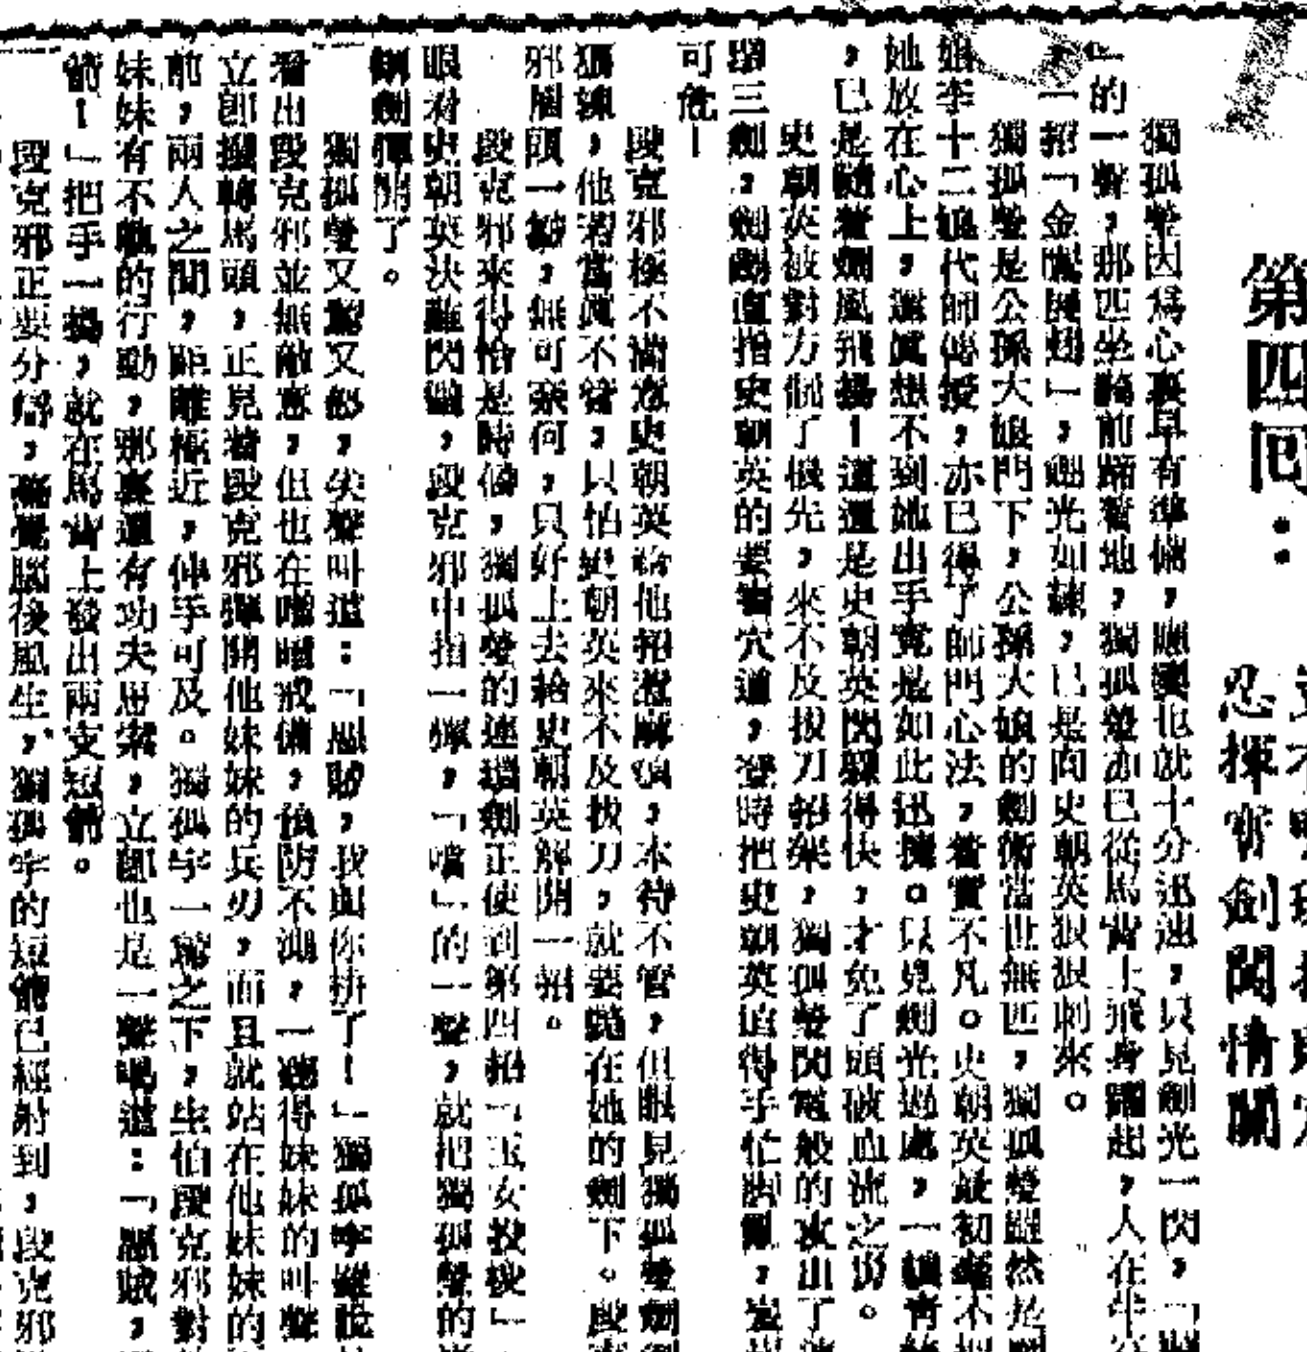 第四回：
忍揮寶劍闖情關
獨孤瑩因爲心裏早有準備，應變也就十分迅速，只見劍光一閃，「
」的一聲，那匹坐騎前蹄着地，獨孤瑩亦已從馬背上飛身躍起，人在半
，一招「金鵰展翅」，劍光如練，已是向史朝英狠狠刺來。
獨孤瑩是公孫大娘門下，公孫大娘的劍術當世無匹，獨孤瑩雖然是
李十二娘代師傳授，亦已得了師門心法，着實不凡。史朝英最初毫不把
她放在心上，還眞想不到她出手竟是如此迅捷。只見劍光過處，一縷青絲
，已是隨着劍風飛揚！這還是史朝英閃躲得快，才免了頭破血流之災。
史朝英被對方佔了機先，來不及拔刀招架，獨孤瑩閃電般的攻出了
三劍，劍劍直指史朝英的要害穴道，登時把史朝英迫得手忙脚亂，
可危！
段克邪極不滿意史朝英給他招惹麻煩，本待不管，但眼見獨孤瑩劍
，他若當眞不管，只怕史朝英來不及拔刀，就要斃在她的劍下。段
邪眉頭一皺，無可奈何，只好上去給史朝英解開一招。
段克邪來得恰是時候，獨孤瑩的連環劍正使到第四招「玉女投梭」
眼看史朝英決難閃避，段克邪中指一彈，「噹」的一聲，就把獨孤瑩的
劍彈開了。
獨孤瑩又驚又怒，失聲叫道：「惡賊，我與你拚了！」獨孤宇雖說
看出段克邪並無敵意，但也在暗暗戒備，預防不測，一聽得妹妹的叫聲
立卽撥轉馬頭，正見着段克邪彈開他妹妹的兵刃，而且就站在他妹妹的
前，兩人之間，距離極近，伸手可及。獨孤宇一驚之下，生怕段克邪對
妹妹有不軌的行動，那裏還有功夫思索，立卽也是一聲喝道：「惡賊，
箭！」把手一揚，就在馬背上發出兩支短箭。
段克邪正要分辯，覺腦後風生，獨孤宇的短箭已經射到，段克邪